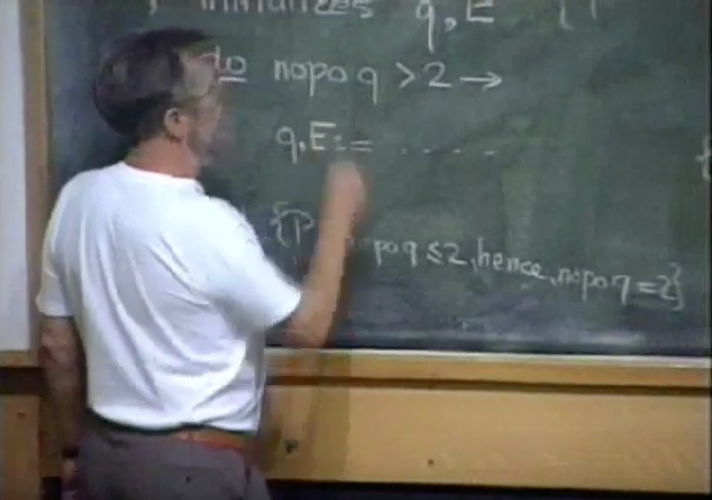 ; initializes q,E {P
do nopo q > 2 →
q,E:= .....
{P nopo q ≤ 2, hence, nopo q = 2}
{